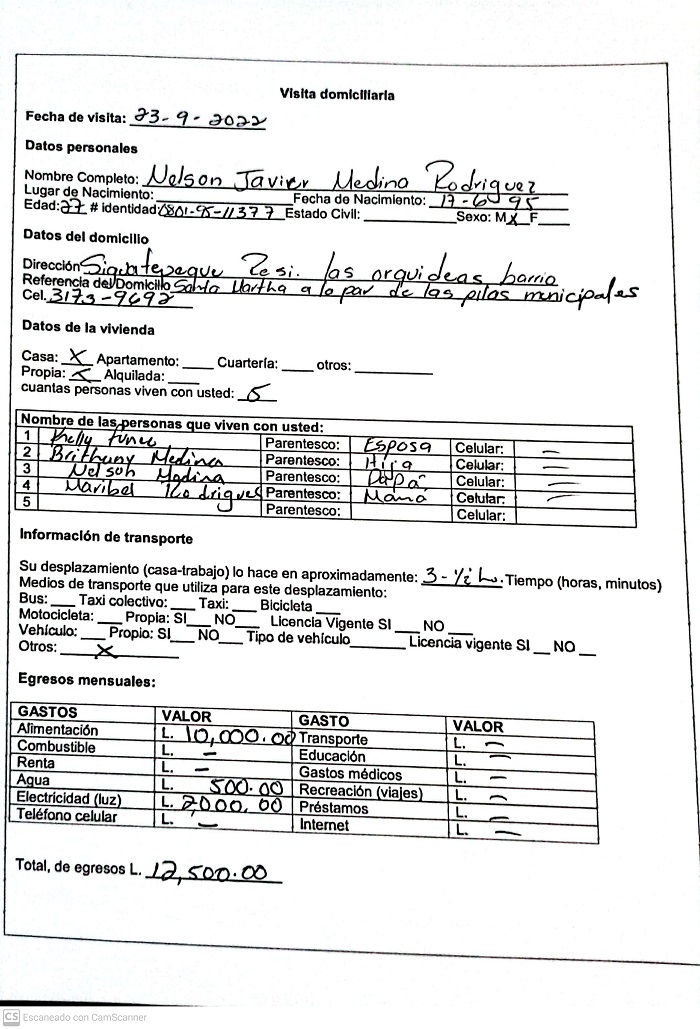 Visita domiciliaria
Fecha de visita: 23-9-2022
Datos personales
Nombre Completo: Nelson Javier Medina Rodriguez
Lugar de Nacimiento: ___ Fecha de Nacimiento: 17-6-95
Edad: 27 # identidad 0801-95-11377 Estado Civil: ___ Sexo: M X F ___
Datos del domicilio
Dirección Siguatepeque Resi. las orquideas barrio
Referencia del Domicilio Santa Martha a la par de las pilas municipales
Cel. 3173-9692
Datos de la vivienda
Casa: X Apartamento: ___ Cuartería: ___ otros: ___
Propia: X Alquilada: ___
cuantas personas viven con usted: 5
Nombre de las personas que viven con usted:
1 Kelly Funez Parentesco: Esposa Celular: –
2 Brithany Medina Parentesco: Hija Celular: –
3 Nelson Medina Parentesco: Papá Celular: –
4 Maribel Rodriguez Parentesco: Mamá Celular: –
5 Parentesco: Celular:
Información de transporte
Su desplazamiento (casa-trabajo) lo hace en aproximadamente: 3-1/2 h. Tiempo (horas, minutos)
Medios de transporte que utiliza para este desplazamiento:
Bus: ___ Taxi colectivo: ___ Taxi: ___ Bicicleta ___
Motocicleta: ___ Propia: SI ___ NO ___ Licencia Vigente SI ___ NO ___
Vehículo: ___ Propio: SI ___ NO ___ Tipo de vehículo ___ Licencia vigente SI __ NO __
Otros: X
Egresos mensuales:
GASTOS VALOR GASTO VALOR
Alimentación L. 10,000.00 Transporte L. –
Combustible L. – Educación L. –
Renta L. – Gastos médicos L. –
Agua L. 500.00 Recreación (viajes) L. –
Electricidad (luz) L. 2000.00 Préstamos L. –
Teléfono celular L. – Internet L. –
Total, de egresos L. 12,500.00
CS Escaneado con CamScanner